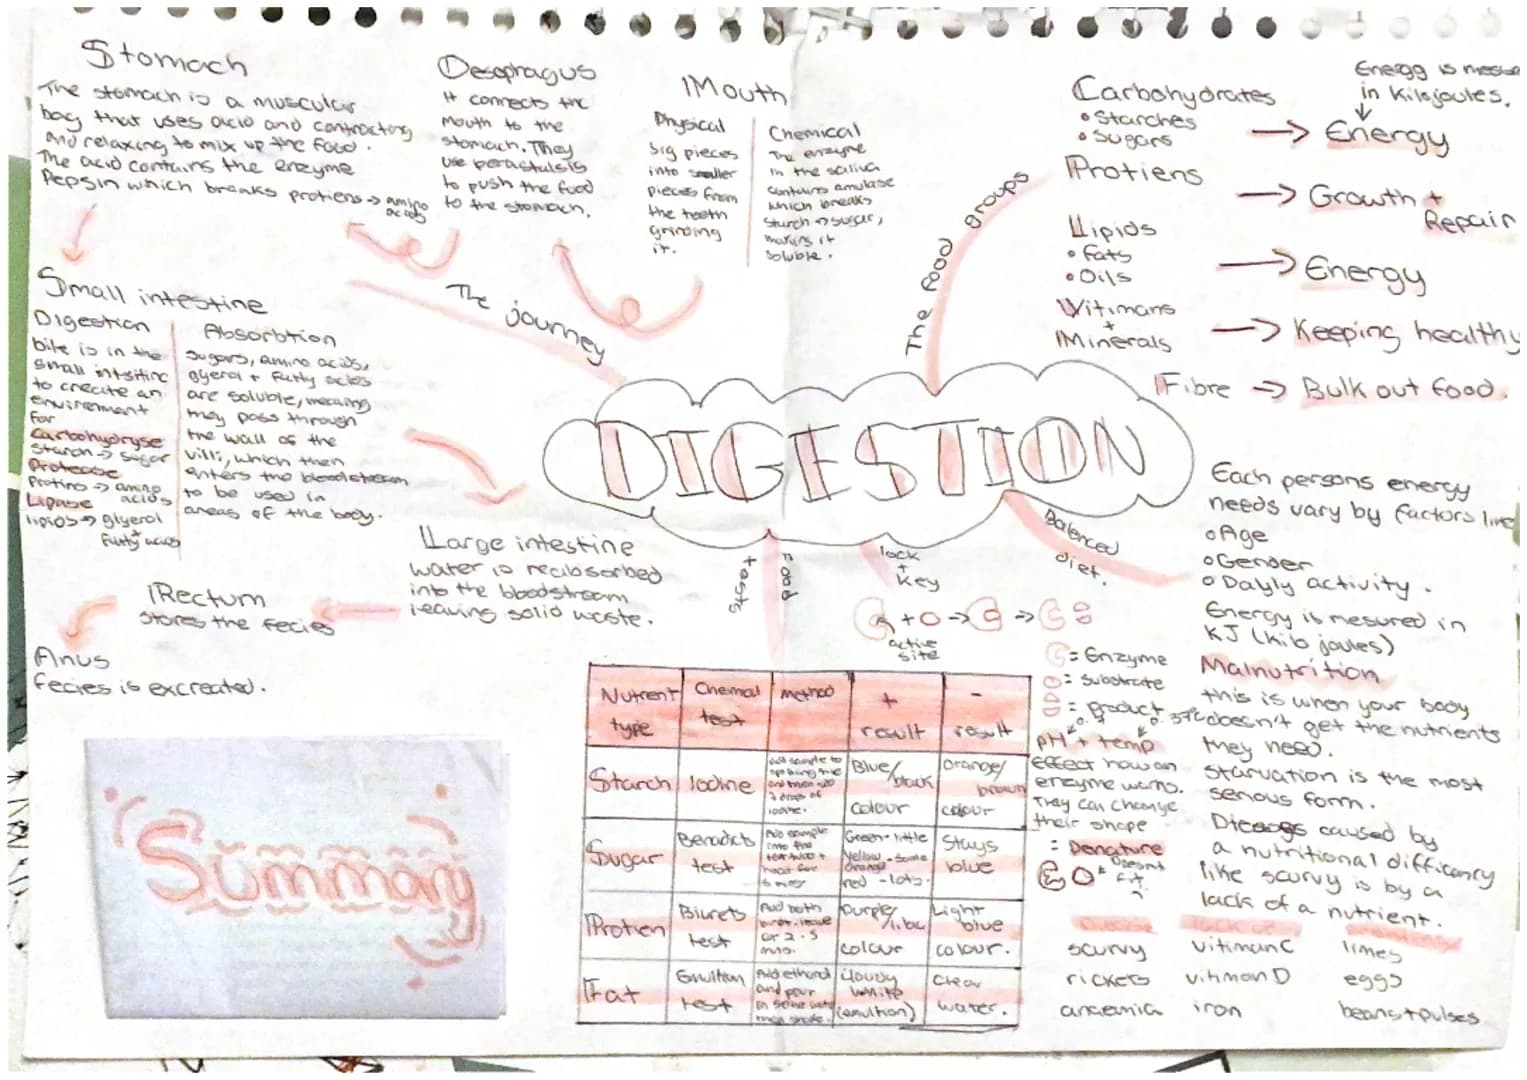 Stomach
The stomach is a muscular
bag that uses acid and contracting
and relaxing to mix up the food.
The acid contains the enzyme
Pepsin which breaks protiens → amino
acids
Oesophagus
It connects the
mouth to the
stomach. They
use perastalsis
to push the food
to the stomach.
Mouth
Physical
big pieces
into smaller
pieces from
the teeth
grinding
it.
Chemical
The enzyme
in the saliva
contains amylase
which breaks
starch → sugar,
making it
soluble.
The journey
Small intestine
Digestion
bile is in the
small intsitine
to create an
environment
for
Carbohydryse
Starch → sugar
Protease
Protins → amino
acids
Lipase
lipids → glyerol
+
fatty acids
Absorbtion
sugars, amino acids,
glyerol + fatty acids
are soluble, meaning
they pass through
the wall of the
villi, which then
enters the bloodstream
to be used in
areas of the body.
Large intestine
water is reabsorbed
into the bloodstream
leaving solid waste.
Rectum
stores the fecies
Anus
fecies is excreated.
Summary
DIGESTION
The food groups
Energy is mesu
in Kilojoules.
Carbohydrates
• Starches
• Sugars
→ Energy
Protiens
→ Growth +
Repair
Lipids
• Fats
• Oils
→ Energy
Vitimans
+
Minerals
→ Keeping healthy
Fibre → Bulk out food.
Balenced
diet.
Each persons energy
needs vary by factors like
• Age
• Gender
• Dayly activity.
Energy is mesured in
KJ (kilo joules)
Malnutrition
this is when your body
doesn't get the nutrients
they need.
starvation is the most
serious form.
caused by
a nutritional difficenry
like scurvy is by a
lack of a nutrient.
scurvy vitiman C limes
rickets vitiman D eggs
anaemia iron beans + pulses
lock
+
key
+ → →
active
site
= Enzyme
= Substrate
= product
37°C
pH + temp
effect how an
enzyme works.
They can change
their shape
= Denature
Doesn't
fit
food
tests
Nutrient
type
Chemical
test
method
+
result
-
result
Starch
Iodine
Add sample to
and then
drops of
iodine.
Blue/
black
colour
orange/
brown
colour
Sugar
Benedicts
test
Add sample
into the
test tube +
heat for
5 mins
Green - little
Yellow - some
orange
red - lots.
Stays
blue
Protien
Biurets
test
Add both
leave
or 2.5
mins.
purple/
lilac
colour
Light
blue
colour.
Fat
Emultion
test
Add ethanol
and pour
into
then shake.
cloudy
white
(emultion)
clear
water.